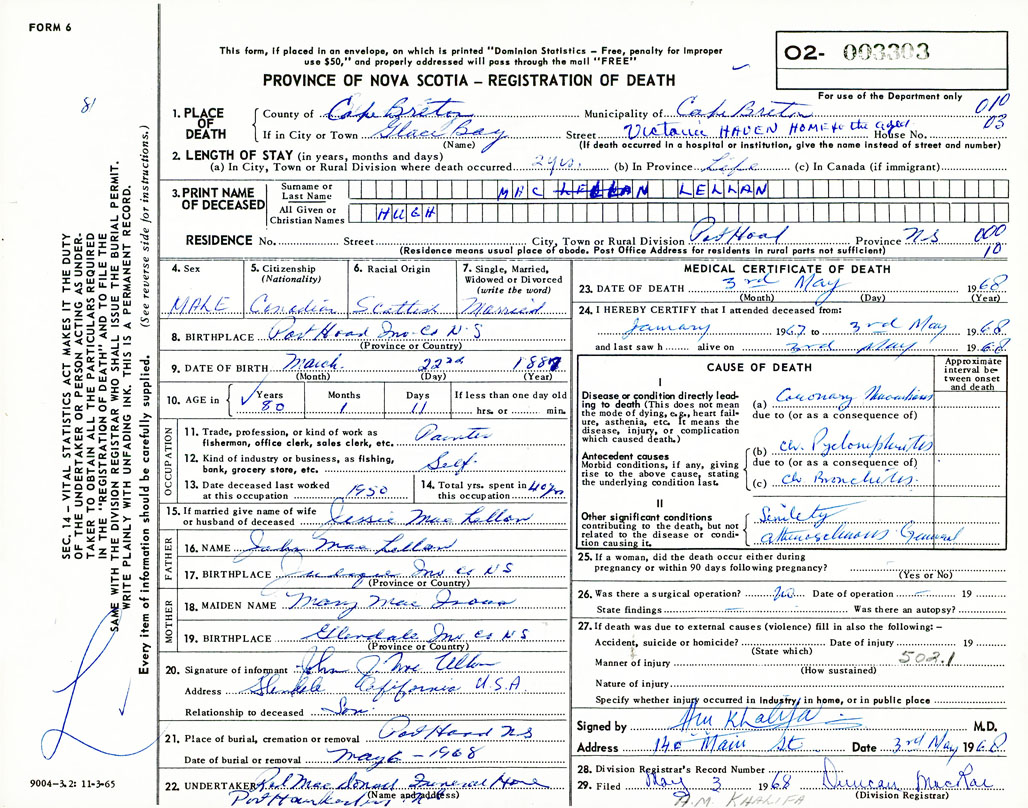 FORM 6
This form, if placed in an envelope, on which is printed "Dominion Statistics – Free, penalty for improper
use $50," and properly addressed will pass through the mail "FREE"
PROVINCE OF NOVA SCOTIA – REGISTRATION OF DEATH
O2- 003303
For use of the Department only
81
010
03
1. PLACE OF DEATH
County of Cape Breton Municipality of Cape Breton
If in City or Town Glace Bay Street Victoria HAVEN HOME for the aged House No.
(Name) (If death occurred in a hospital or institution, give the name instead of street and number)
2. LENGTH OF STAY (in years, months and days)
(a) In City, Town or Rural Division where death occurred 2 yrs. (b) In Province Life (c) In Canada (if immigrant)
3. PRINT NAME OF DECEASED
Surname or Last Name MAC LELLAN
All Given or Christian Names HUGH
RESIDENCE No. Street City, Town or Rural Division Port Hood Province N S 000
10
(Residence means usual place of abode. Post Office Address for residents in rural parts not sufficient)
4. Sex MALE
5. Citizenship (Nationality) Canadian
6. Racial Origin Scottish
7. Single, Married, Widowed or Divorced (write the word) Married
8. BIRTHPLACE Port Hood Inv. Co N S
(Province or Country)
9. DATE OF BIRTH March 22nd 1887
(Month) (Day) (Year)
10. AGE in Years 80 Months 1 Days 11 If less than one day old
hrs. or min.
OCCUPATION
11. Trade, profession, or kind of work as
fisherman, office clerk, sales clerk, etc. Painter
12. Kind of industry or business, as fishing,
bank, grocery store, etc. Self.
13. Date deceased last worked
at this occupation 1950
14. Total yrs. spent in
this occupation 40 yrs
15. If married give name of wife
or husband of deceased Jessie Mac Lellan
FATHER
16. NAME John Mac Lellan
17. BIRTHPLACE Judique Inv Co N S
(Province or Country)
MOTHER
18. MAIDEN NAME Mary Mac
19. BIRTHPLACE Glendale Inv Co N S
(Province or Country)
20. Signature of informant John J Mac Lellan
Address Glendale California U.S.A.
Relationship to deceased Son.
21. Place of burial, cremation or removal Port Hood N S
Date of burial or removal May 6 - 1968
22. UNDERTAKER Mac Donald Funeral Home
(Name and address)
Port Hawkesbury N S
MEDICAL CERTIFICATE OF DEATH
23. DATE OF DEATH 3rd May 1968
(Month) (Day) (Year)
24. I HEREBY CERTIFY that I attended deceased from:
January 1967 to 3rd May 1968
and last saw h alive on 3rd May 1968
CAUSE OF DEATH
Approximate interval between onset and death
I
Disease or condition directly leading to death (This does not mean the mode of dying, e.g., heart failure, asthenia, etc. It means the disease, injury, or complication which caused death.)
(a) Coronary
due to (or as a consequence of)
Antecedent causes
Morbid conditions, if any, giving rise to the above cause, stating the underlying condition last.
(b) Ch. Pyelonephritis
due to (or as a consequence of)
(c) Ch Bronchitis.
II
Other significant conditions
contributing to the death, but not related to the disease or condition causing it.
Senility
Atherosclerosis General
25. If a woman, did the death occur either during
pregnancy or within 90 days following pregnancy?
(Yes or No)
26. Was there a surgical operation? No Date of operation – 19
State findings – Was there an autopsy?
27. If death was due to external causes (violence) fill in also the following: –
Accident, suicide or homicide? Date of injury 19
(State which)
Manner of injury 502.1
(How sustained)
Nature of injury
Specify whether injury occurred in industry, in home, or in public place
Signed by Khalifa M.D.
Address 140 Main St Date 3rd May 1968
28. Division Registrar's Record Number
29. Filed May 3 1968 Duncan MacRae
(Division Registrar)
A.M. KHALIFA
SEC. 14 – VITAL STATISTICS ACT MAKES IT THE DUTY
OF THE UNDERTAKER OR PERSON ACTING AS UNDER-
TAKER TO OBTAIN ALL THE PARTICULARS REQUIRED
IN THE "REGISTRATION OF DEATH" AND TO FILE THE
SAME WITH THE DIVISION REGISTRAR WHO SHALL ISSUE THE BURIAL PERMIT.
WRITE PLAINLY WITH UNFADING INK. THIS IS A PERMANENT RECORD.
Every item of information should be carefully supplied. (See reverse side for instructions.)
9004–3.2: 11-3-65